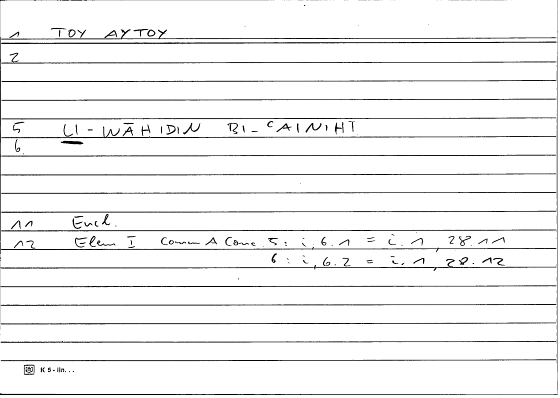 1 ΤΟΥ ΑΥΤΟΥ
2
5 LI-WĀHIDIN BI-ʿAINIHI
6
11 Eucl.
12 Elem I Comm A Conc. 5: i, 6.1 = i.1, 28.11
6: i, 6.2 = i.1, 28.12
K 5 - iin. . .